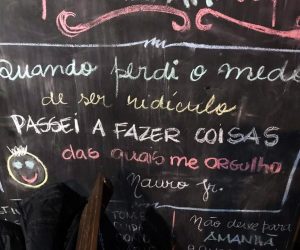 Quando perdi o medo
de ser ridículo
PASSEI A FAZER COISAS
das quais me orgulho.
Nauro Jr.
TOME
Não deixe para
AMANHÃ